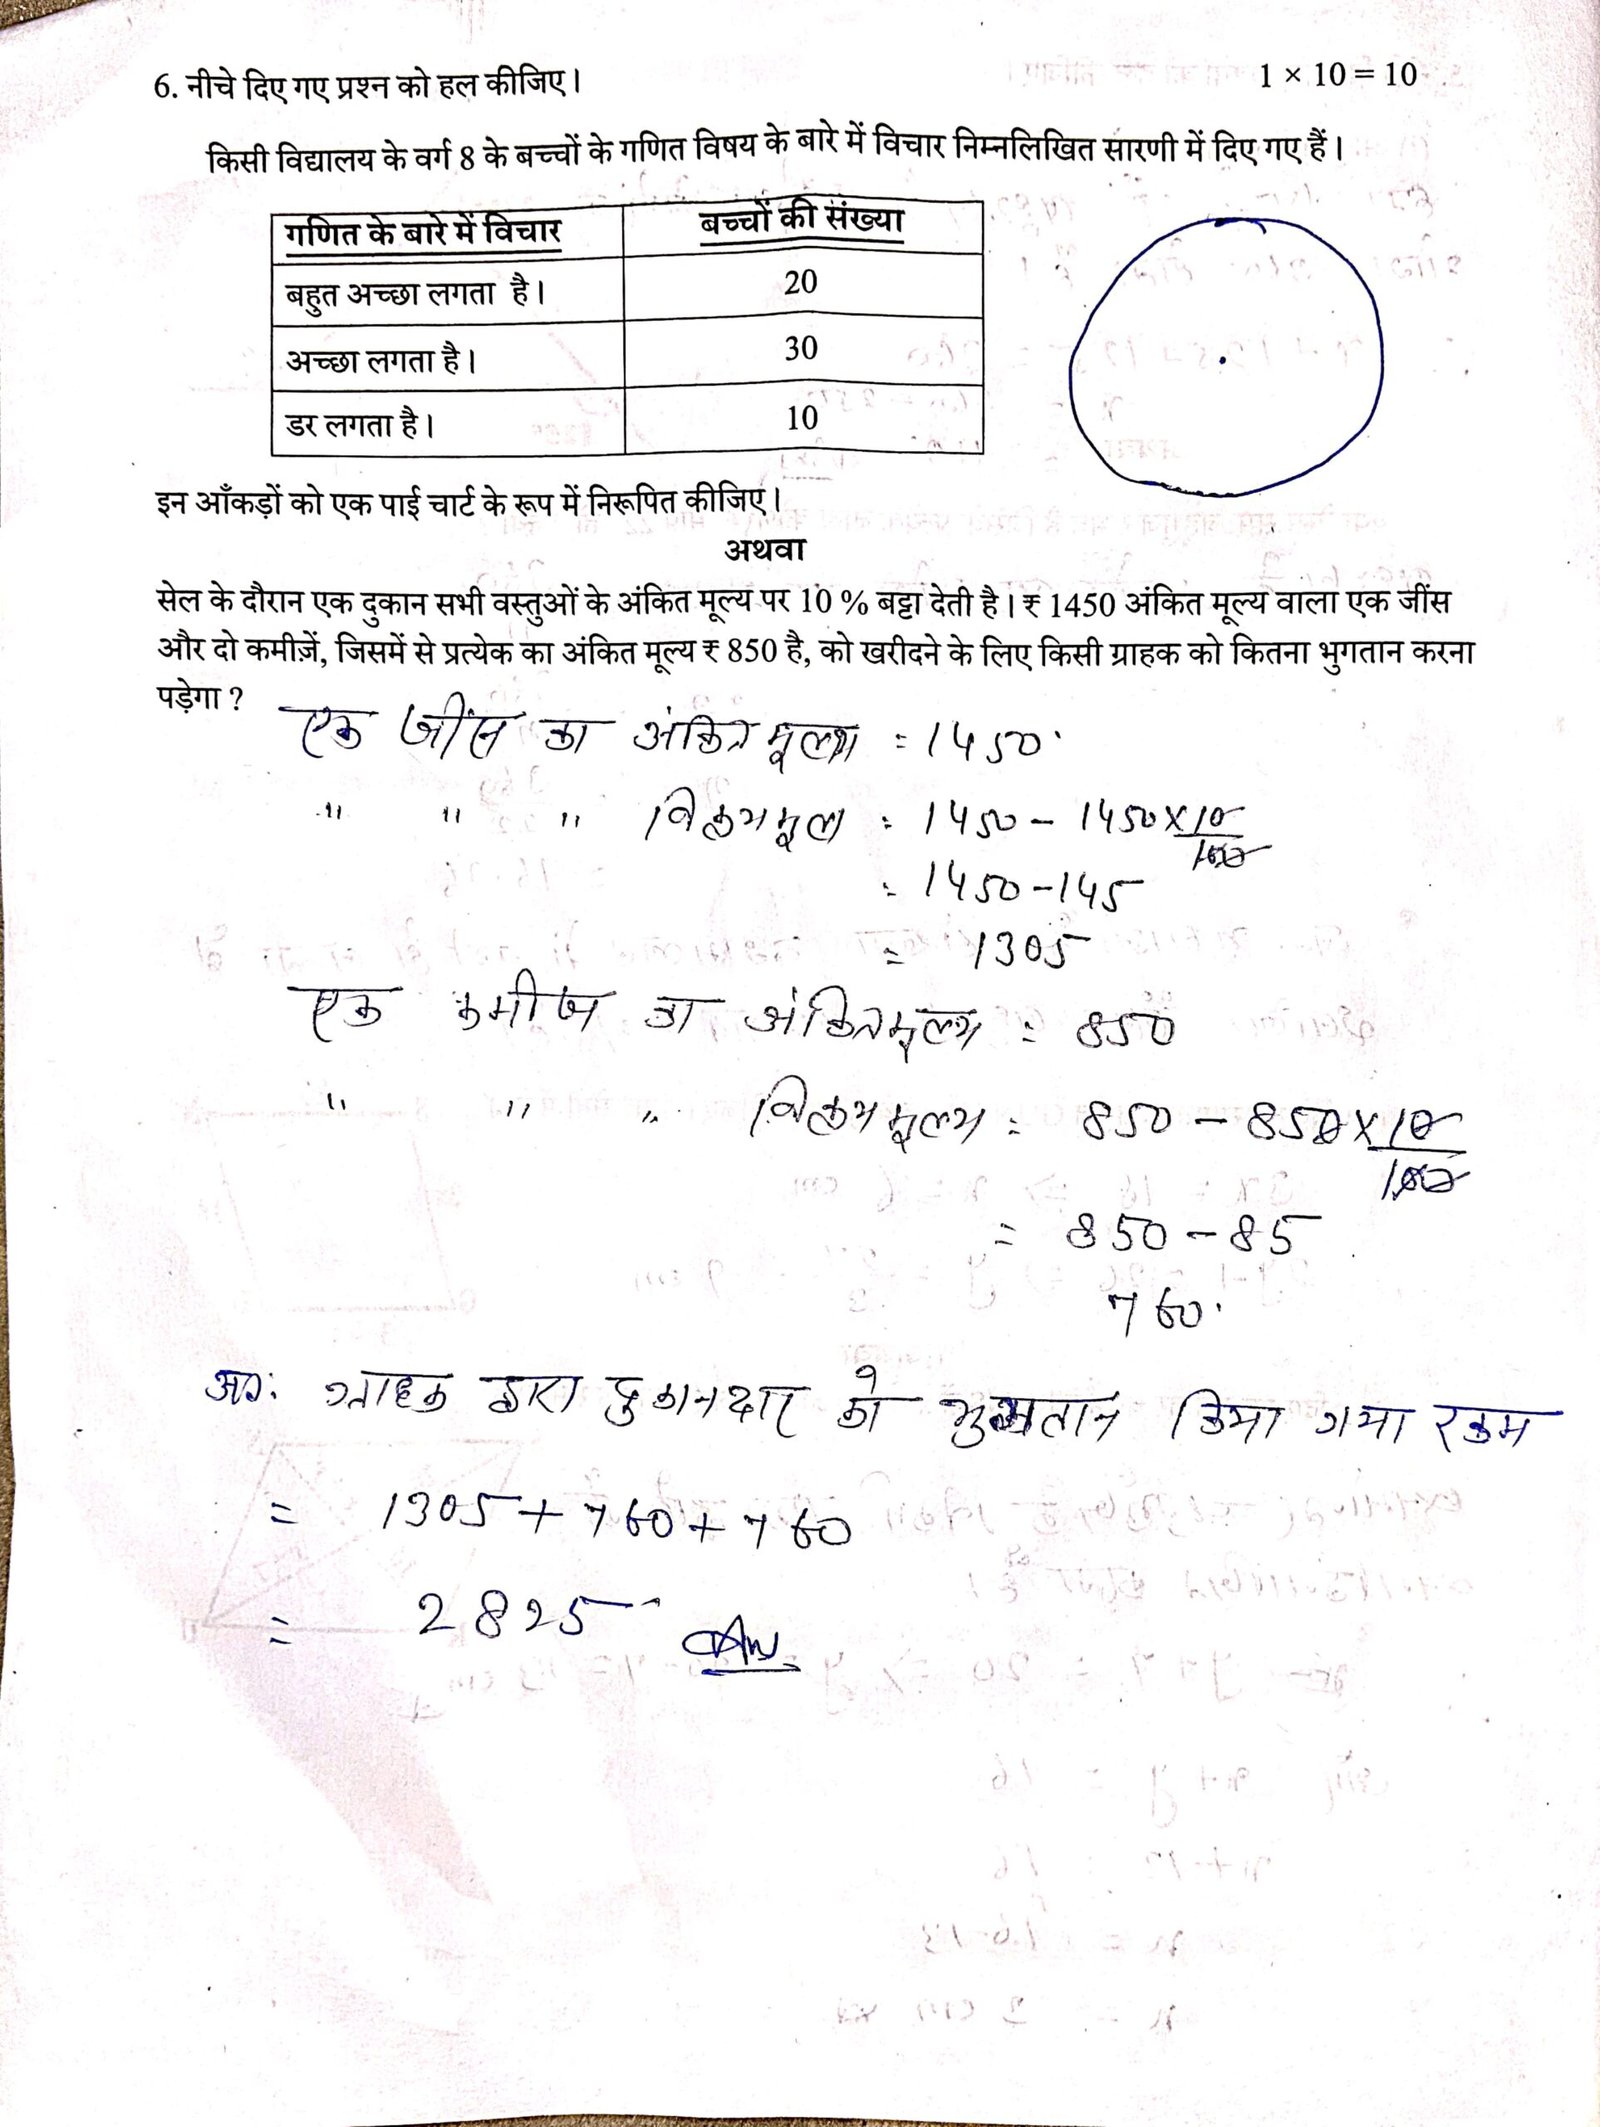 6. नीचे दिए गए प्रश्न को हल कीजिए। 1 × 10 = 10
किसी विद्यालय के वर्ग 8 के बच्चों के गणित विषय के बारे में विचार निम्नलिखित सारणी में दिए गए हैं।
गणित के बारे में विचार बच्चों की संख्या
बहुत अच्छा लगता है। 20
अच्छा लगता है। 30
डर लगता है। 10
इन आँकड़ों को एक पाई चार्ट के रूप में निरूपित कीजिए।
अथवा
सेल के दौरान एक दुकान सभी वस्तुओं के अंकित मूल्य पर 10 % बट्टा देती है। ₹ 1450 अंकित मूल्य वाला एक जींस
और दो कमीज़ें, जिसमें से प्रत्येक का अंकित मूल्य ₹ 850 है, को खरीदने के लिए किसी ग्राहक को कितना भुगतान करना
पड़ेगा ?
एक जींस का अंकित मूल्य = 1450
" " " विक्रय मूल्य = 1450 - 1450 × 10/100
= 1450 - 145
= 1305
एक कमीज का अंकित मूल्य = 850
" " " विक्रय मूल्य = 850 - 850 × 10/100
= 850 - 85
760
अतः ग्राहक द्वारा दुकानदार को भुगतान किया गया रकम
= 1305 + 760 + 760
= 2825 Ans